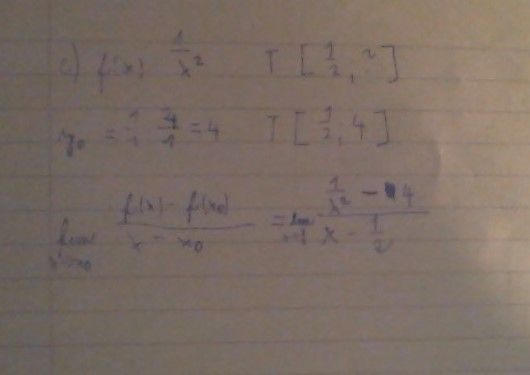 c) f(x) 1/x² T [1/2, ?]
y₀ = 1/1 4/1 = 4 T [1/2, 4]
lim x→x₀ (f(x) - f(x₀))/(x - x₀) = lim (1/x² - 4)/(x - 1/2)